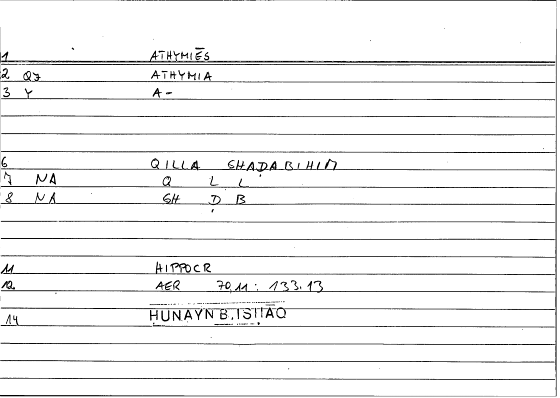 1 ATHYMIĒS
2 QJ ATHYMIA
3 Y A-
6 QILLA GHAḌABIHIM
7 NA Q L L
8 NA GH Ḍ B
11 HIPPOCR
12 AER 70,11: 133.13
14 ḤUNAYN B.ISḤĀQ